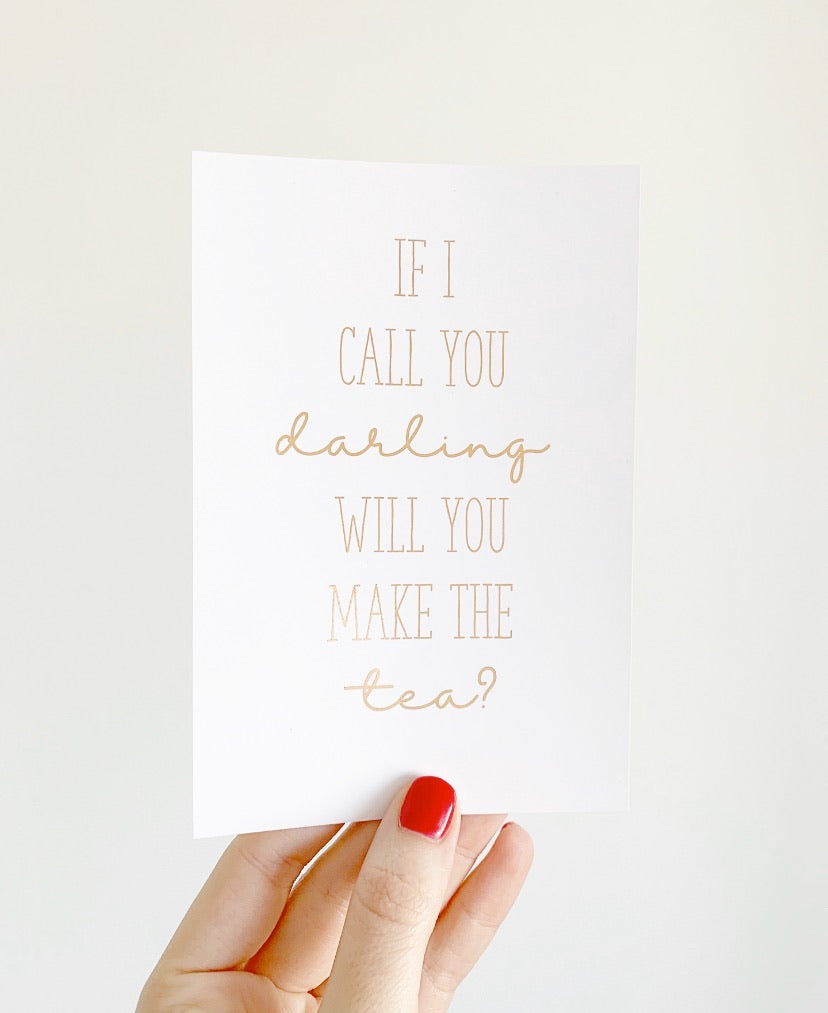 IF I
CALL YOU
darling
WILL YOU
MAKE THE
tea?